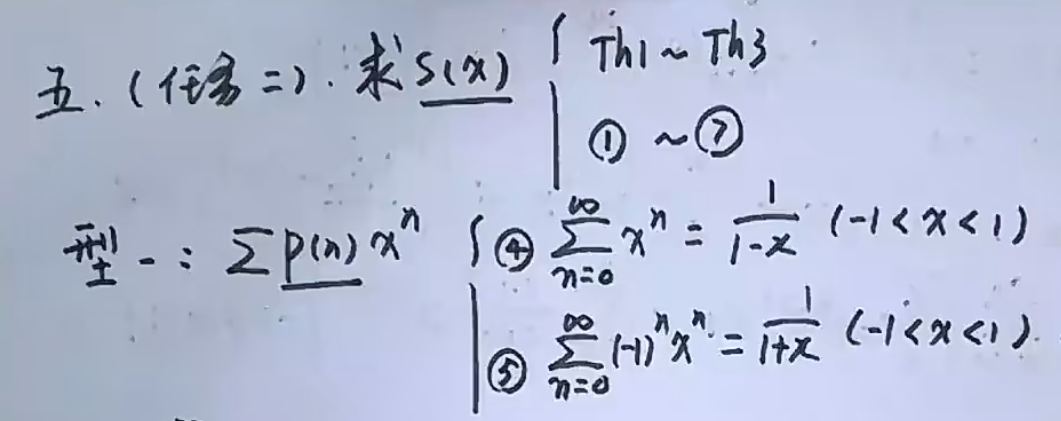 五. (任务二). 求 S(x) { Th1 ~ Th3
① ~ ⑦
型一: ∑ P(n) xⁿ { ④ ∑_{n=0}^{∞} xⁿ = 1/(1-x) (-1<x<1)
⑤ ∑_{n=0}^{∞} (-1)ⁿ xⁿ = 1/(1+x) (-1<x<1).